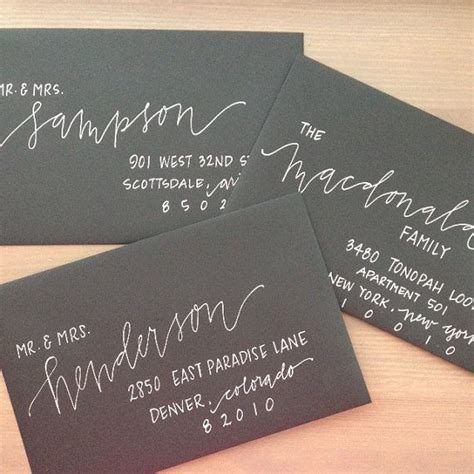 MR. & MRS.
sampson
901 WEST 32ND S
SCOTTSDALE,
8502
THE
macdonald
FAMILY
3480 TONOPAH LOO
APARTMENT 501
NEW YORK, new york
10010
MR. & MRS.
henderson
2850 EAST PARADISE LANE
DENVER, colorado
82010